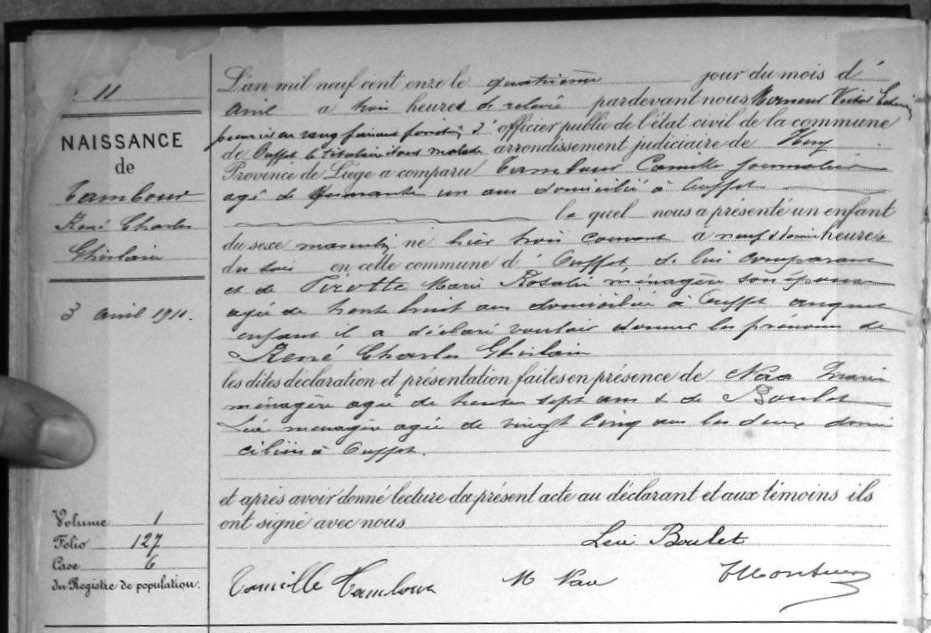 11
NAISSANCE
de
Tambour
René Charles
Ghislain
3 avril 1911.
Volume 1
Folio 127
Case 6
du Registre de population.
L'an mil neuf cent onze le quatrième jour du mois d'
avril à trois heures de relevée pardevant nous Victor
officier public de l'état civil de la commune
de Ouffet le titulaire étant malade arrondissement judiciaire de Huy
Province de Liège a comparu Tambour Camille journalier
agé de quarante un ans domicilié à Ouffet
le quel nous a présenté un enfant
du sexe masculin né hier trois courant à neuf & demie heures
du soir en cette commune d' Ouffet, de lui comparant
et de Pirotte Marie Rosalie ménagère son épouse
agée de trente huit ans domiciliée à Ouffet auquel
enfant il a déclaré vouloir donner les prénoms de
René Charles Ghislain
les dites déclaration et présentation faites en présence de Marie
ménagère agée de trente sept ans & de Boulet
ménagère agée de vingt cinq ans les deux domi
ciliées à Ouffet.
et après avoir donné lecture du présent acte au déclarant et aux témoins ils
ont signé avec nous
Boulet
Camille Tambour M